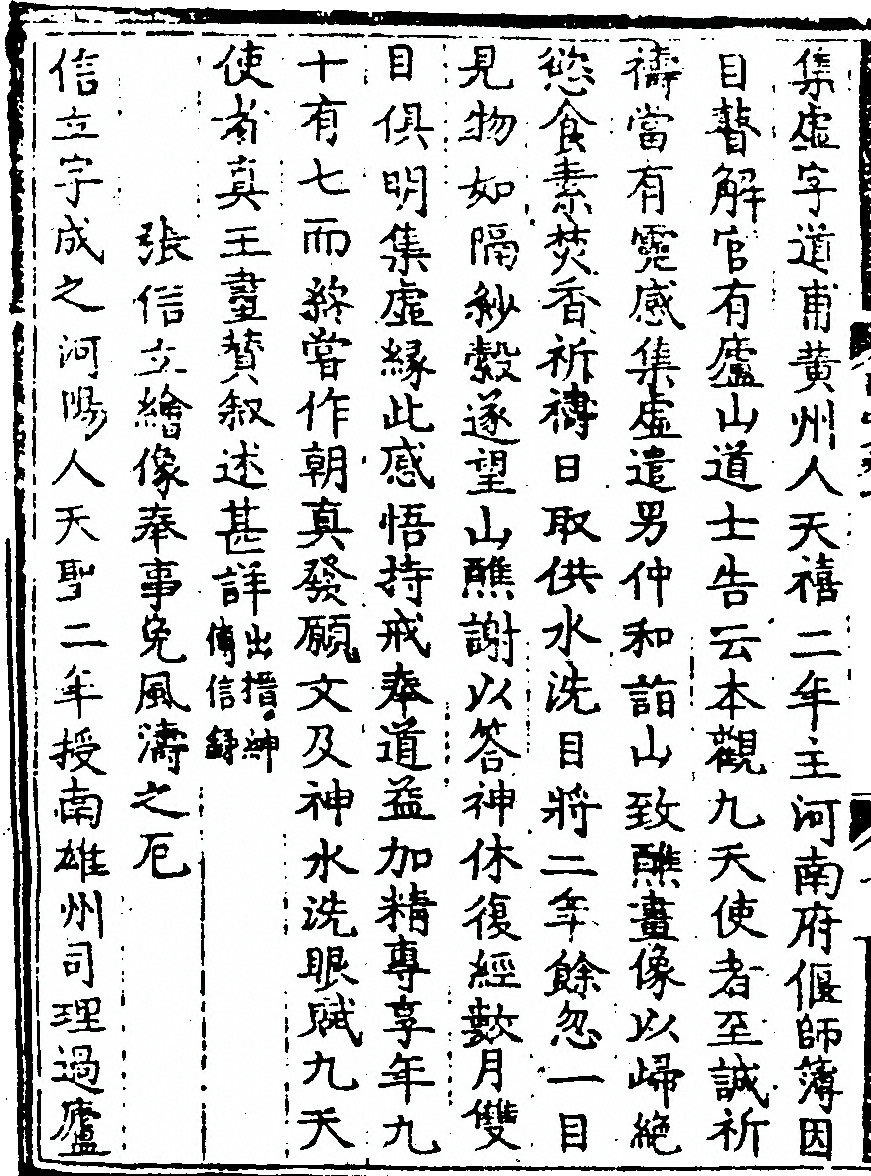 集虛字道甫黄州人天禧二年主河南府偃師簿因
目瞽解官有廬山道士告云本觀九天使者至誠祈
禱當有霛感集虛遣男仲和詣山致醮畫像以歸絶
慾食素焚香祈禱日取供水洗目將二年餘忽一目
見物如隔紗縠遂望山醮謝以答神休復經數月雙
目俱明集虛緣此感悟持戒奉道益加精專享年九
十有七而終嘗作朝真發願文及神水洗眼賦九天
使者真王畫贊叙述甚詳出搢紳傳信録
張信立繪像奉事免風濤之厄
信立字成之河陽人天聖二年授南雄州司理過廬